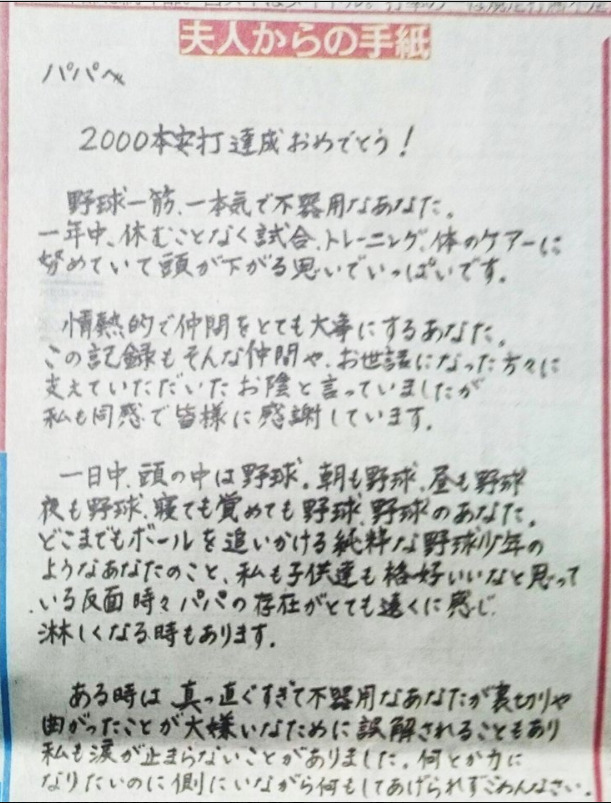 夫人からの手紙
パパへ
2000本安打達成おめでとう!
野球一筋、一本気で不器用なあなた。
一年中、休むことなく試合、トレーニング、体のケアーに
努めていて頭が下がる思いでいっぱいです。
情熱的で仲間をとても大事にするあなた。
この記録もそんな仲間や、お世話になった方々に
支えていただいたお陰と言っていましたが
私も同感で皆様に感謝しています。
一日中、頭の中は野球。朝も野球、昼も野球
夜も野球、寝ても覚めても野球、野球のあなた。
どこまでもボールを追いかける純粋な野球少年の
ようなあなたのこと、私も子供達も格好いいなと思って
いる反面時々パパの存在がとても遠くに感じ
淋しくなる時もあります。
ある時は真っ直ぐすぎて不器用なあなたが裏切りや
曲がったことが大嫌いなために誤解されることもあり
私も涙が止まらないことがありました。何とか力に
なりたいのに側にいながら何もしてあげられずごめんなさい。